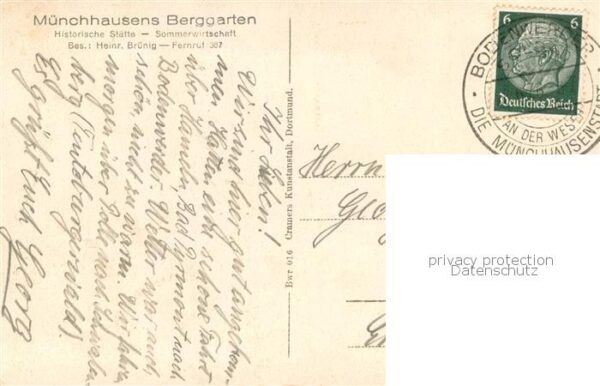 Münchhausens Berggarten
Historische Stätte — Sommerwirtschaft
Bes.: Heinr. Brünig — Fernruf 387
Ihr Lieben!
Wir sind hier gut angekom-
men. Hatten eine schöne Fahrt
über Hameln, Bad Pyrmont nach
Bodenwerder. Wetter war auch
schön, nicht zu warm. Wir fahren
morgen über Polle nach
berg (Teutoburgerwald).
Es grüßt Euch Georg
Bwr 916 Cramers Kunstanstalt, Dortmund.
6 6
Deutsches Reich
BODENWERDER
AN DER WESER
DIE MÜNCHHAUSENSTADT
Herrn
privacy protection
Datenschutz